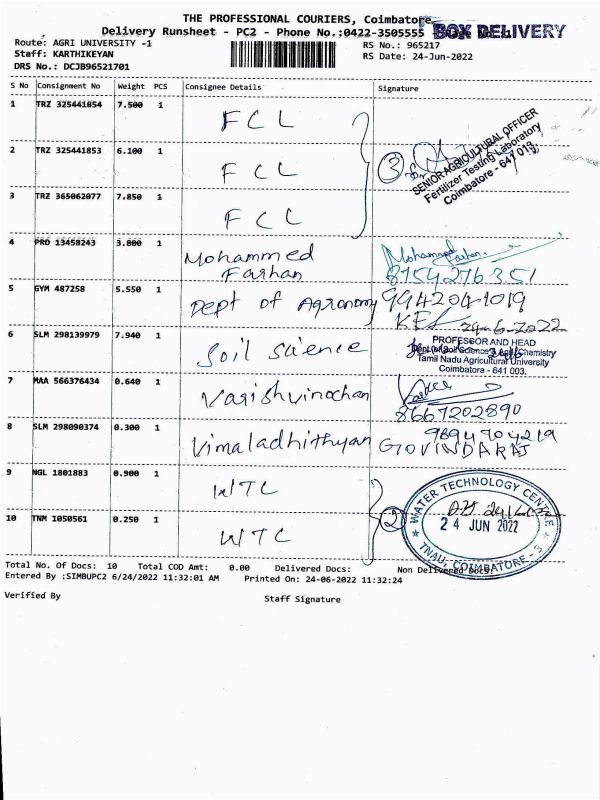 THE PROFESSIONAL COURIERS, Coimbatore
Delivery Runsheet - PC2 - Phone No.:0422-3505555
BOX DELIVERY
Route: AGRI UNIVERSITY -1
RS No.: 965217
Staff: KARTHIKEYAN
RS Date: 24-Jun-2022
DRS No.: DCJB96521701
S No Consignment No Weight PCS Consignee Details Signature
1 TRZ 325441854 7.500 1 FCL
2 TRZ 325441853 6.100 1 FCL
3
SENIOR AGRICULTURAL OFFICER
Fertilizer Testing Laboratory
Coimbatore - 641 013.
3 TRZ 365062077 7.850 1 FCC
4 PRO 13458243 3.800 1 Mohammed Farhan
Mohammed Farhan.
8754276351
5 GYM 487258 5.550 1 Dept of Agronomy 9942041019
24-6-2022
6 SLM 298139979 7.940 1 Soil Science
PROFESSOR AND HEAD
Dept. of Soil Science & Agrl. Chemistry
Tamil Nadu Agricultural University
Coimbatore - 641 003.
7 MAA 566376434 0.640 1 Varishvinochan
8667202890
8 SLM 298090374 0.300 1 Vimaladhithyan
9894704219
GOVINDARAJ
9 NGL 1801883 0.900 1 WTC
2
WATER TECHNOLOGY CENTRE
24 JUN 2022
TNAU, COIMBATORE - 3
10 TNM 1050561 0.250 1 WTC
Total No. Of Docs: 10 Total COD Amt: 0.00 Delivered Docs: Non Delivered Docs:
Entered By :SIMBUPC2 6/24/2022 11:32:01 AM Printed On: 24-06-2022 11:32:24
Verified By Staff Signature